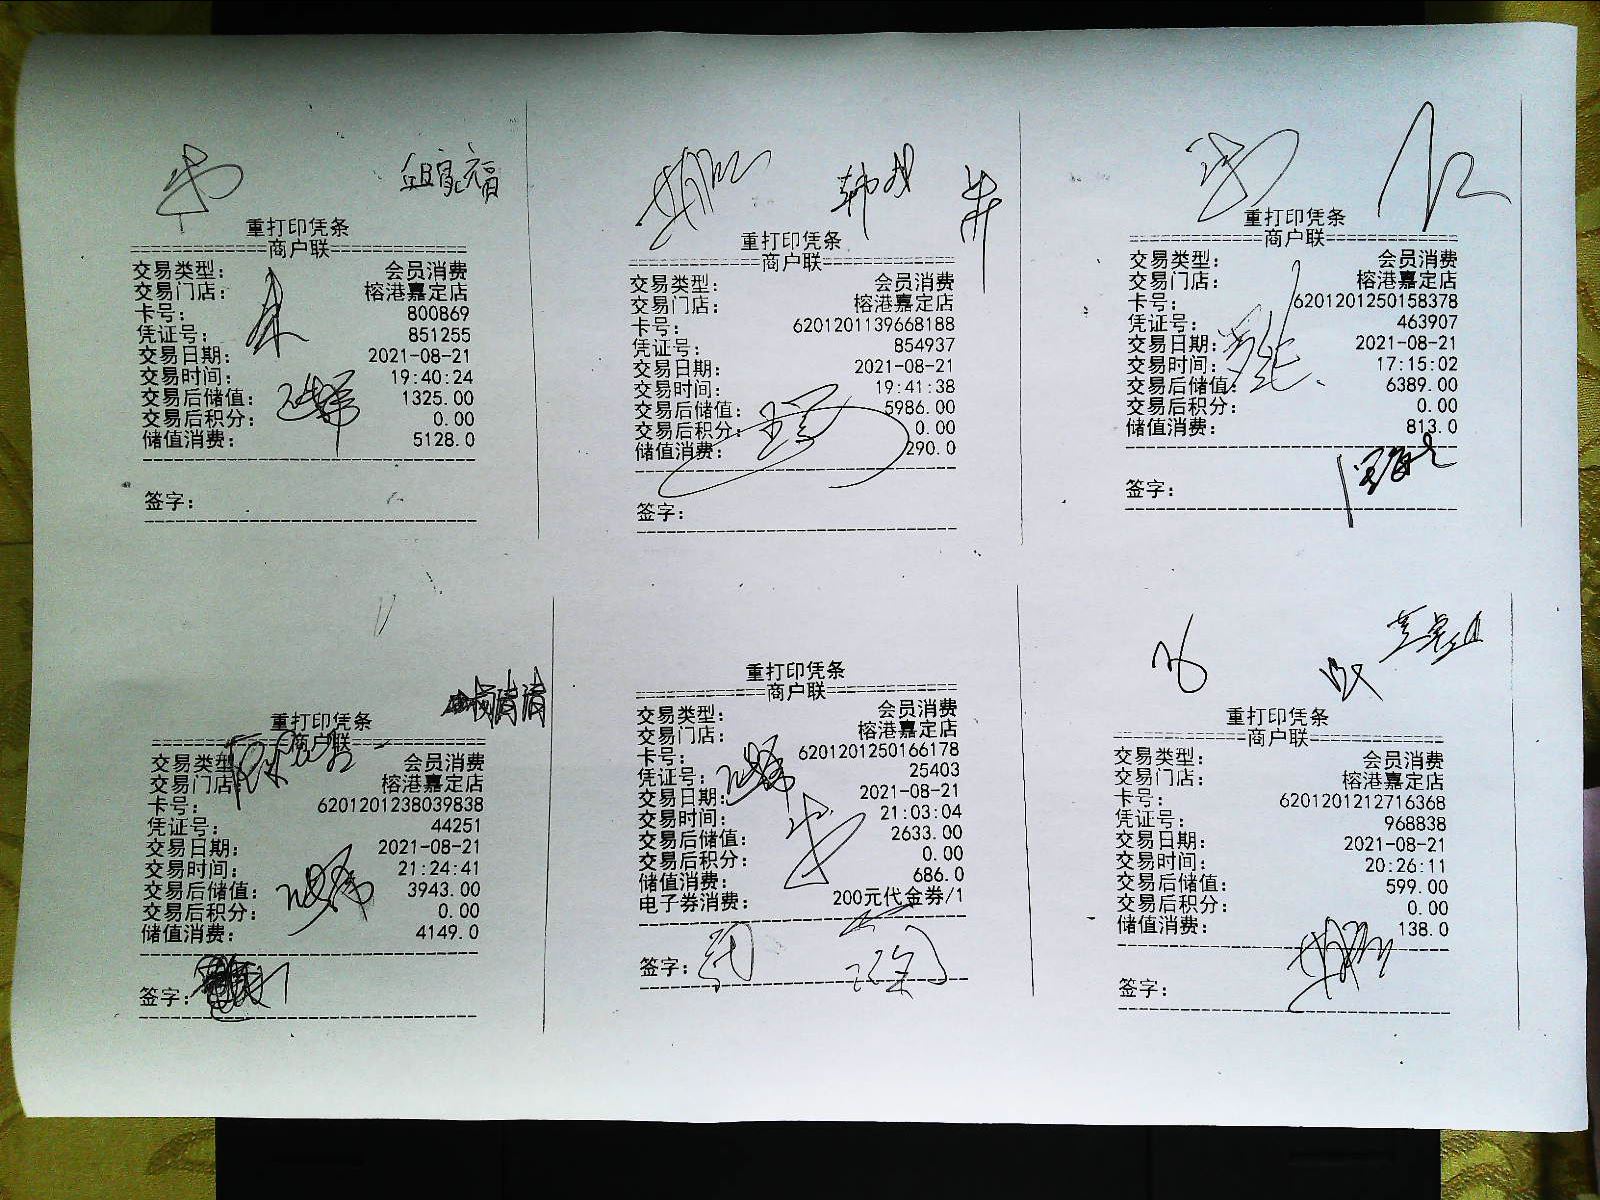 重打印凭条
==============商户联==============
交易类型： 会员消费
交易门店： 榕港嘉定店
卡号： 800869
凭证号： 851255
交易日期： 2021-08-21
交易时间： 19:40:24
交易后储值： 1325.00
交易后积分： 0.00
储值消费： 5128.0
签字：
重打印凭条
==============商户联==============
交易类型： 会员消费
交易门店： 榕港嘉定店
卡号： 6201201139668188
凭证号： 854937
交易日期： 2021-08-21
交易时间： 19:41:38
交易后储值： 5986.00
交易后积分： 0.00
储值消费： 290.0
签字：
重打印凭条
==============商户联==============
交易类型： 会员消费
交易门店： 榕港嘉定店
卡号： 6201201250158378
凭证号： 463907
交易日期： 2021-08-21
交易时间： 17:15:02
交易后储值： 6389.00
交易后积分： 0.00
储值消费： 813.0
签字：
重打印凭条
==============商户联==============
交易类型 会员消费
交易门店 榕港嘉定店
卡号： 6201201238039838
凭证号： 44251
交易日期： 2021-08-21
交易时间： 21:24:41
交易后储值： 3943.00
交易后积分： 0.00
储值消费： 4149.0
签字：
重打印凭条
==============商户联==============
交易类型： 会员消费
交易门店： 榕港嘉定店
卡号： 6201201250166178
凭证号： 25403
交易日期： 2021-08-21
交易时间： 21:03:04
交易后储值： 2633.00
交易后积分： 0.00
储值消费： 686.0
电子券消费： 200元代金券/1
签字：
重打印凭条
==============商户联==============
交易类型： 会员消费
交易门店： 榕港嘉定店
卡号： 6201201212716368
凭证号： 968838
交易日期： 2021-08-21
交易时间： 20:26:11
交易后储值： 599.00
交易后积分： 0.00
储值消费： 138.0
签字：